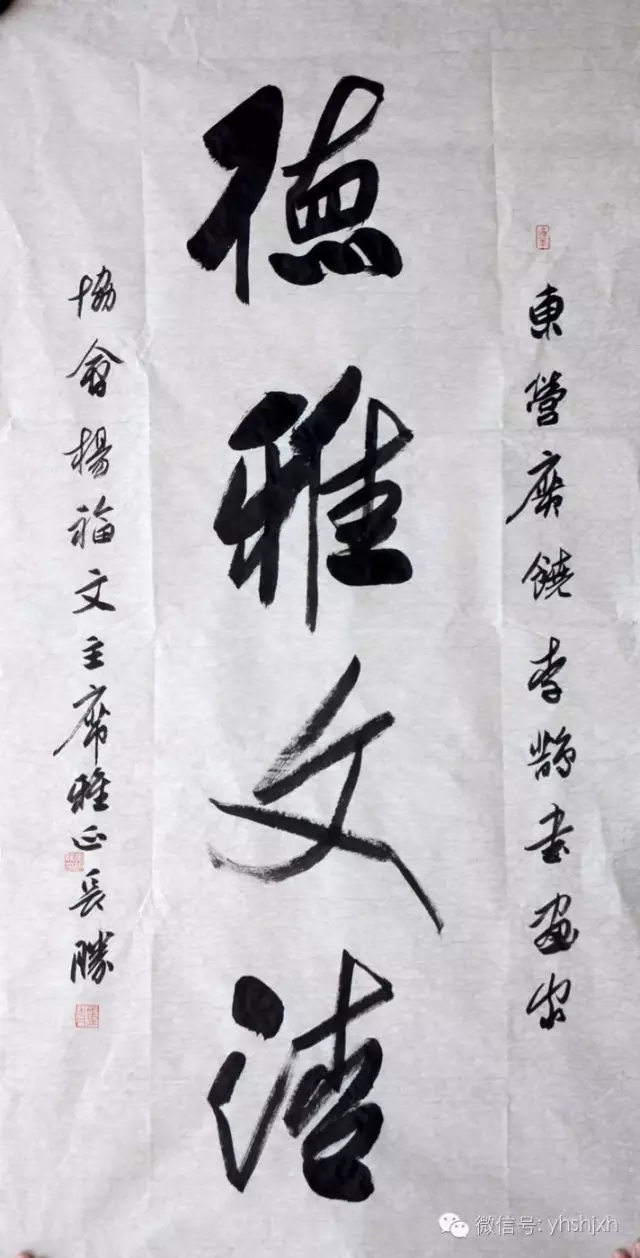 東營廣饒李鵲書畫家
德雅文清
協會楊福文主席雅正長勝
微信号: yhshjxh